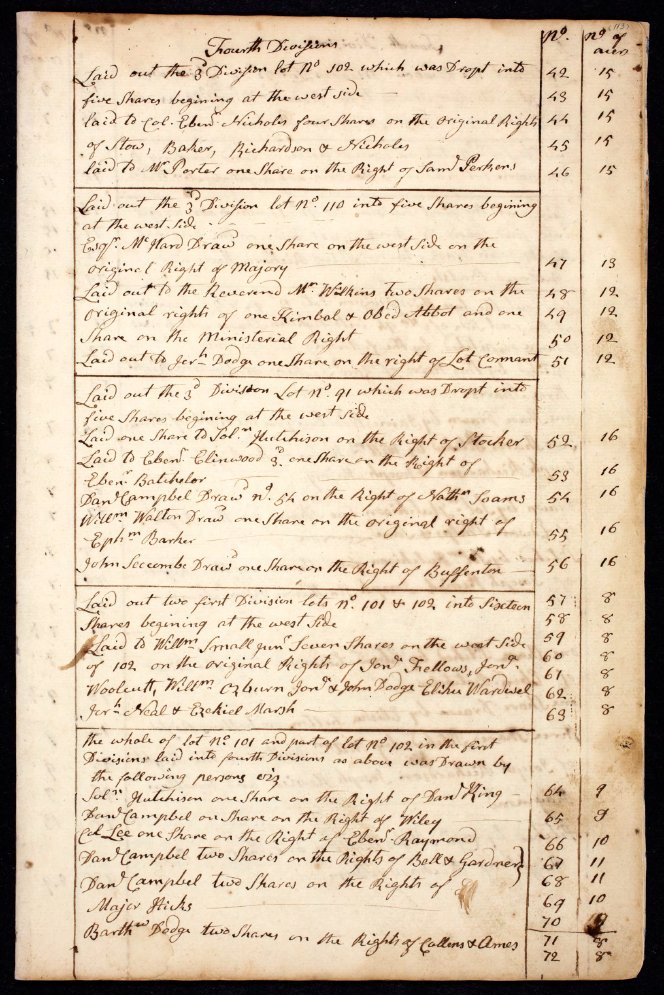 Fourth Divisions no. no of acres
Laid out the 3d Division lot No 102 which was Dropt into 42 15
five Shares begining at the west side 43 15
laid to Col. Ebenr Nichols four Shares on the original Rights 44 15
of Stow, Baker, Richardson & Nichols 45 15
laid to Mr Porter one Share on the Right of Saml Perkens 46 15
Laid out the 3d Division lot No. 110 into five Shares begining
at the west side
Esqr. McHard Drawd one Share on the west Side on the
original Right of Majory 47 13
Laid out to the Reverend Mr. Wilkins two Shares on the 48 12
original rights of one Kimbal & Obed Abbot and one 49 12
Share on the Ministerial Right 50 12
Laid out to Jerh Dodge one Share on the right of Lot Connant 51 12
Laid out the 3d Division Lot No. 91 which was Dropt into
five Shares begining at the west side
Laid one Share to Soln Hutchison on the Right of Stocker 52 16
Laid to Ebenr. Elinwood 3d. one Share on the Right of
Ebenr Batchelor 53 16
Danl Campbel Drawd no. 54 on the Right of Nathn Soams 54 16
Willm Walton Drawd one Share on the original right of
Ephm Barker 55 16
John Seccombe Drawd one Share on the Right of Buffenton 56 16
Laid out two first Division lots no. 101 & 102 into Sixteen 57 8
Shares begining at the west side 58 8
Laid to Willm Small junr Seven Shares on the west Side 59 8
of 102 on the original Rights of Jonn Fellows, Jonn. 60 8
Woolcutt, Willm Ozburn Jonn & John Dodge Elisher Wardwel 61 8
62 8
Jerh Neal & Ezekiel Marsh 63 8
the whole of lot No. 101 and part of lot No 102 in the first
Divisions laid into fourth Divisions as above was Drawn by
the following persons viz
Soln Hutchison one Share on the Right of Danl King 64 9
Danl Campbel one Share on the Right of Wiley 65 9
Col Lee one Share on the Right of Ebenr Raymond 66 10
Danl Campbel two Shares on the Rights of Bell & Gardner} 67 11
Danl Campbel two Shares on the Rights of 68 11
Major Hicks 69 10
70
Barthw Dodge two Shares on the Rights of Collens & Ames 71 8
72 8